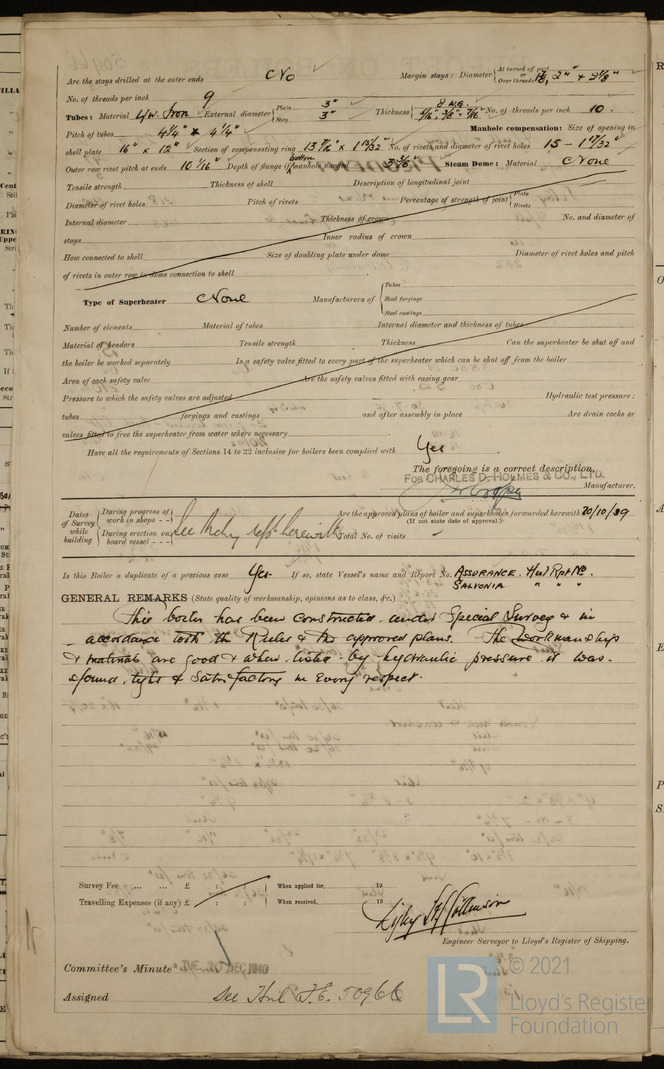 Are the stays drilled at the outer ends No Margin stays: Diameter { At turned off part, Over threads 2" & 2 1/8"
No. of threads per inch 9
Tubes: Material L.W. Iron External diameter { Plain 3" Stay 3" Thickness { 8 W.G. 5/16" 3/8" & 7/16" No. of threads per inch 10.
Pitch of tubes 4 1/4" x 4 1/4" Manhole compensation: Size of opening in
shell plate 16" x 12" Section of compensating ring No. of rivets and diameter of rivet holes 15 -
Outer row rivet pitch at ends 10 1/16" Depth of flange if manhole flanged bottom Steam Dome: Material None
Tensile strength Thickness of shell Description of longitudinal joint
Diameter of rivet holes Pitch of rivets Percentage of strength of joint { Plate Rivets
Internal diameter Thickness of crown No. and diameter of
stays Inner radius of crown
How connected to shell Size of doubling plate under dome Diameter of rivet holes and pitch
of rivets in outer row in dome connection to shell
Type of Superheater None Manufacturers of { Tubes Steel forgings Steel castings
Number of elements Material of tubes Internal diameter and thickness of tubes
Material of headers Tensile strength Thickness Can the superheater be shut off and
the boiler be worked separately Is a safety valve fitted to every part of the superheater which can be shut off from the boiler
Area of each safety valve Are the safety valves fitted with easing gear
Pressure to which the safety valves are adjusted Hydraulic test pressure:
tubes forgings and castings and after assembly in place Are drain cocks or
valves fitted to free the superheater from water where necessary
Have all the requirements of Sections 14 to 22 inclusive for boilers been complied with Yes
The foregoing is a correct description,
FOR CHARLES D. HOLMES & CO., LTD.
Manufacturer.
Dates of Survey while building { During progress of work in shops - - During erection on board vessel - - - See Mchy rept herewith Are the approved plans of boiler and superheater forwarded herewith 20/10/39
(If not state date of approval.)
Total No. of visits
Is this Boiler a duplicate of a previous case Yes. If so, state Vessel's name and Report No. ASSURANCE. Hul Rpt No.
SALVONIA " " "
GENERAL REMARKS (State quality of workmanship, opinions as to class, &c.)
This boiler has been constructed under Special Survey & in
accordance with the Rules & the approved plans. The workmanship
& materials are good & when tested by hydraulic pressure it was
found tight & satisfactory in every respect.
Survey Fee ... ... £ : : When applied for, 19
Travelling Expenses (if any) £ : : When received, 19
Engineer Surveyor to Lloyd's Register of Shipping.
Committee's Minute TUE. DEC 1940
Assigned See Hul F.E. 50966
© 2021
Lloyd's Register
Foundation